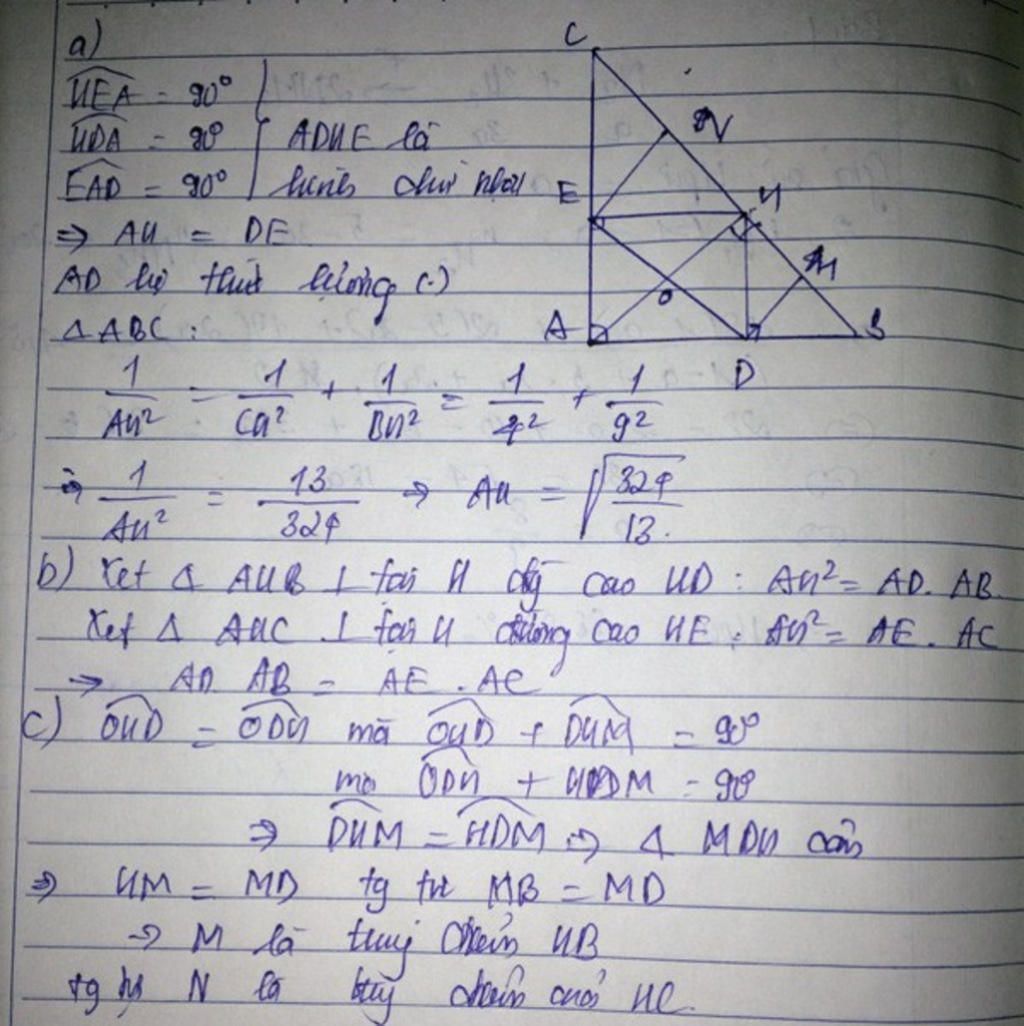 a)
HEA = 90°
HDA = 90° ADHE là
EAD = 90° hình chữ nhật
⇒ AH = DE
AD hệ thức lượng (-)
Δ ABC:
1/AH² = 1/CH² + 1/BH² = 1/4² + 1/9²
⇒ 1/AH² = 13/324 ⇒ AH = √(324/13).
b) Xét Δ AHB ⊥ tại H đg cao HD: AH² = AD. AB
Xét Δ AHC ⊥ tại H đường cao HE: AH² = AE. AC
→ AD. AB = AE. AC
c) OHD = ODH mà OHD + DHM = 90°
mà ODH + HDM = 90
⇒ DHM = HDM ⇒ Δ MDH cân
⇒ HM = MD tg tự MB = MD
→ M là trung điểm HB
tg tự N là trung điểm của HC.
C
N
E
H
M
O
A
B
D